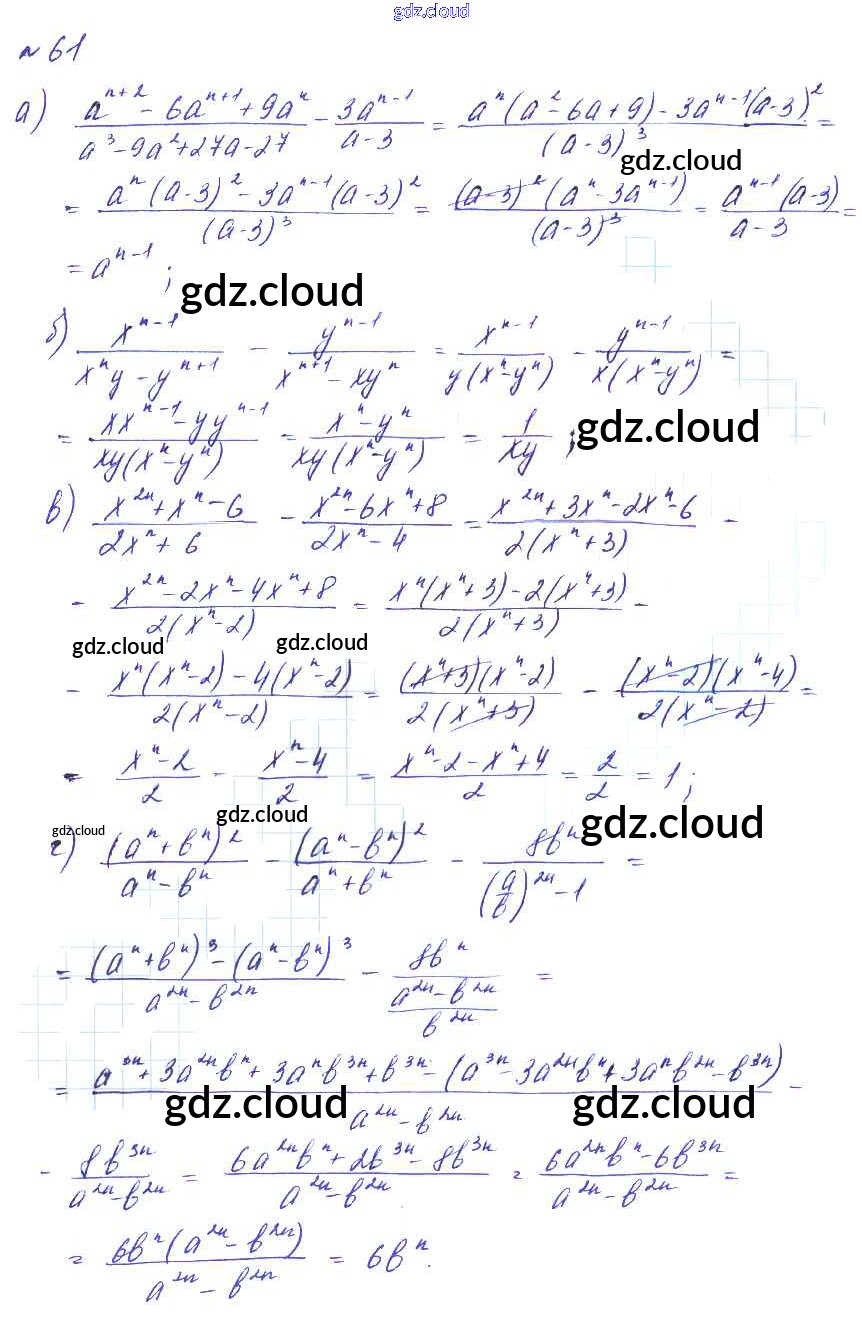 gdz.cloud
№ 61
а) (a^(n+2) - 6a^(n+1) + 9a^n)/(a^3 - 9a^2 + 27a - 27) - (3a^(n-1))/(a - 3) = (a^n(a^2 - 6a + 9) - 3a^(n-1)(a-3)^2)/((a-3)^3) =
gdz.cloud
= (a^n(a-3)^2 - 3a^(n-1)(a-3)^2)/((a-3)^3) = ((a-3)^2(a^n - 3a^(n-1)))/((a-3)^3) = (a^(n-1)(a-3))/(a-3) =
= a^(n-1);
gdz.cloud
б) (x^(n-1))/(x^n y - y^(n+1)) - (y^(n-1))/(x^(n+1) - xy^n) = (x^(n-1))/(y(x^n - y^n)) - (y^(n-1))/(x(x^n - y^n)) =
= (xx^(n-1) - yy^(n-1))/(xy(x^n - y^n)) = (x^n - y^n)/(xy(x^n - y^n)) = 1/(xy);
gdz.cloud
в) (x^(2n) + x^n - 6)/(2x^n + 6) - (x^(2n) - 6x^n + 8)/(2x^n - 4) = (x^(2n) + 3x^n - 2x^n - 6)/(2(x^n + 3)) -
- (x^(2n) - 2x^n - 4x^n + 8)/(2(x^n - 2)) = (x^n(x^n + 3) - 2(x^n + 3))/(2(x^n + 3)) -
gdz.cloud gdz.cloud
- (x^n(x^n - 2) - 4(x^n - 2))/(2(x^n - 2)) = ((x^n + 3)(x^n - 2))/(2(x^n + 3)) - ((x^n - 2)(x^n - 4))/(2(x^n - 2)) =
= (x^n - 2)/2 - (x^n - 4)/2 = (x^n - 2 - x^n + 4)/2 = 2/2 = 1;
gdz.cloud gdz.cloud gdz.cloud
г) ((a^n + b^n)^2)/(a^n - b^n) - ((a^n - b^n)^2)/(a^n + b^n) - (8b^n)/((a/b)^(2n) - 1) =
= ((a^n + b^n)^3 - (a^n - b^n)^3)/(a^(2n) - b^(2n)) - (8b^n)/((a^(2n) - b^(2n))/(b^(2n))) =
= (a^(3n) + 3a^(2n)b^n + 3a^n b^(3n) + b^(3n) - (a^(3n) - 3a^(2n)b^n + 3a^n b^(2n) - b^(3n)))/(a^(2n) - b^(2n)) -
gdz.cloud gdz.cloud
- (8b^(3n))/(a^(2n) - b^(2n)) = (6a^(2n)b^n + 2b^(3n) - 8b^(3n))/(a^(2n) - b^(2n)) = (6a^(2n)b^n - 6b^(3n))/(a^(2n) - b^(2n)) =
= (6b^n(a^(2n) - b^(2n)))/(a^(2n) - b^(2n)) = 6b^n.